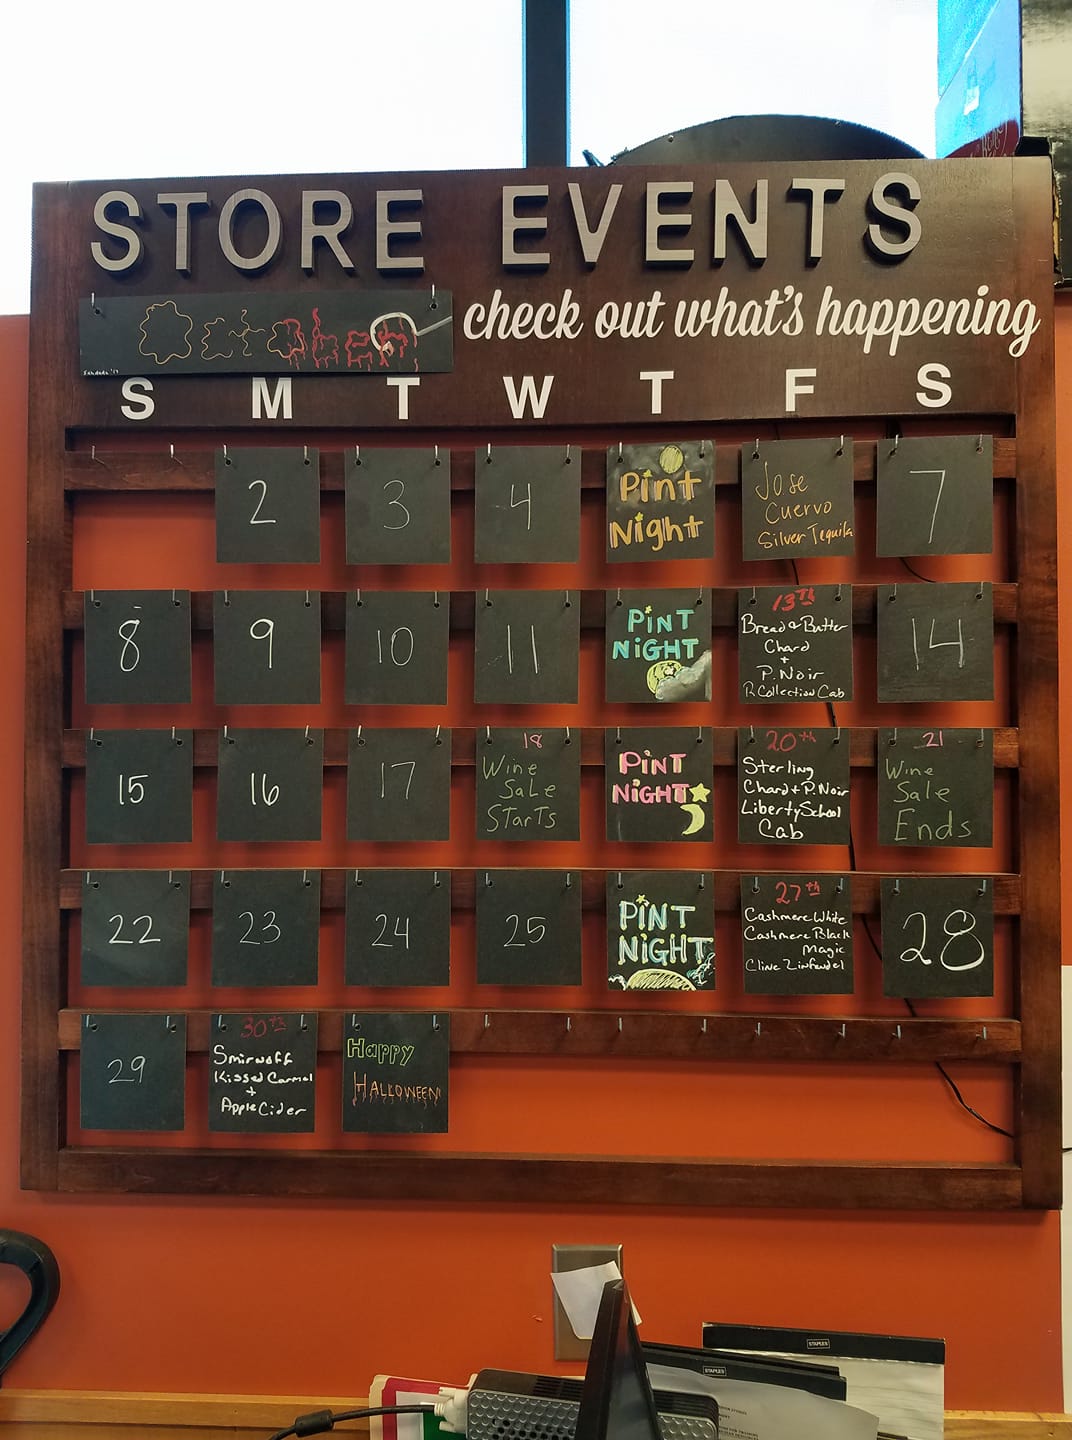 STORE EVENTS
October
check out what's happening
S M T W T F S
2
3
4
Pint
Night
Jose
Cuervo
Silver Tequila
7
8
9
10
11
PINT
NIGHT
13TH
Bread & Butter
Chard
+
P. Noir
R Collection Cab
14
15
16
17
18
Wine
Sale
Starts
PINT
NIGHT
20th
Sterling
Chard + P. Noir
Liberty School
Cab
21
Wine
Sale
Ends
22
23
24
25
PINT
NIGHT
27th
Cashmere White
Cashmere Black
Magic
Cline Zinfendel
28
29
30TH
Smirnoff
Kissed Carmel
+
Apple Cider
Happy
HALLOWEEN!
STAPLES
STAPLES